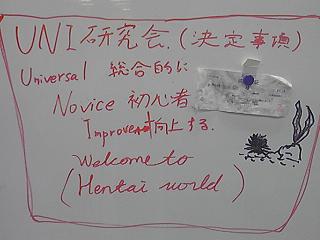 UNI研究会.(決定事項)
Universal 総合的に
Novice 初心者
Improvement向上する.
Welcome to
(Hentai world)